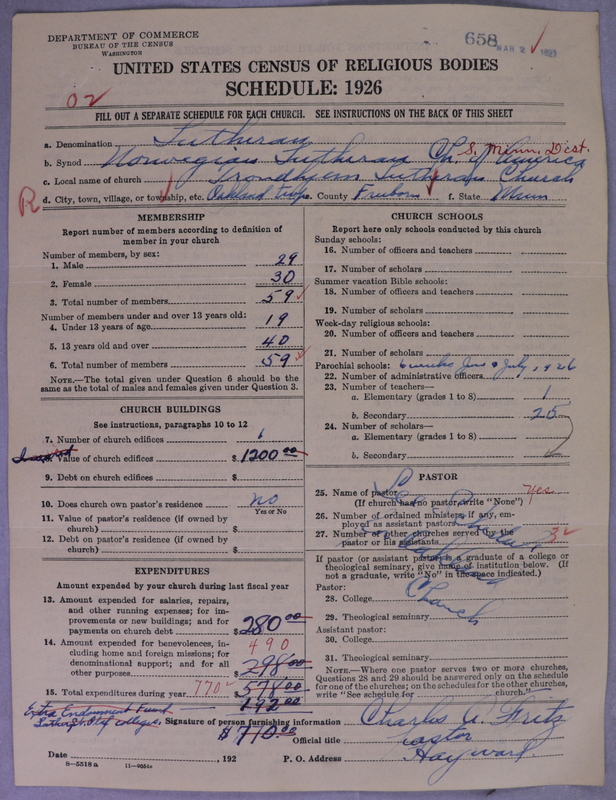 DEPARTMENT OF COMMERCE
BUREAU OF THE CENSUS
WASHINGTON
658 MAR 2
UNITED STATES CENSUS OF RELIGIOUS BODIES
SCHEDULE: 1926
02
FILL OUT A SEPARATE SCHEDULE FOR EACH CHURCH. SEE INSTRUCTIONS ON THE BACK OF THIS SHEET
a. Denomination Lutheran
S. Minn. Dist.
b. Synod Norwegian Lutheran Ch. of America
c. Local name of church Trondhjem Lutheran Church
R d. City, town, village, or township, etc. Oakland twp. County Freeborn f. State Minn
MEMBERSHIP
Report number of members according to definition of
member in your church
Number of members, by sex:
1. Male 29
2. Female 30
3. Total number of members 59
Number of members under and over 13 years old:
4. Under 13 years of age 19
5. 13 years old and over 40
6. Total number of members 59
NOTE.—The total given under Question 6 should be
the same as the total of males and females given under Question 3.
CHURCH BUILDINGS
See instructions, paragraphs 10 to 12
7. Number of church edifices 1
8. Value of church edifices $ 1200.00
9. Debt on church edifices $
10. Does church own pastor's residence no
Yes or No
11. Value of pastor's residence (if owned by
church) $
12. Debt on pastor's residence (if owned by
church) $
EXPENDITURES
Amount expended by your church during last fiscal year
13. Amount expended for salaries, repairs,
and other running expenses; for im-
provements or new buildings; and for
payments on church debt $ 280.00
14. Amount expended for benevolences, in-
cluding home and foreign missions; for
denominational support; and for all
other purposes 490
$ 298.00
15. Total expenditures during year 770 $ 578.00
192.00
Extra Endowment Fund
Colleges.
$ 710.00
CHURCH SCHOOLS
Report here only schools conducted by this church
Sunday schools:
16. Number of officers and teachers
17. Number of scholars
Summer vacation Bible schools:
18. Number of officers and teachers
19. Number of scholars
Week-day religious schools:
20. Number of officers and teachers
21. Number of scholars
Parochial schools: 6 weeks June & July, 1926
22. Number of administrative officers
23. Number of teachers—
a. Elementary (grades 1 to 8) 1
b. Secondary 25
24. Number of scholars—
a. Elementary (grades 1 to 8)
b. Secondary
PASTOR
25. Name of pastor Yes
(If church has no pastor, write "None")
26. Number of ordained ministers, if any, em-
ployed as assistant pastors
27. Number of other churches served by the
pastor or his assistants 3
If pastor (or assistant pastor) is a graduate of a college or
theological seminary, give name of institution below. (If
not a graduate, write "No" in the space indicated.)
Pastor:
28. College
Church
29. Theological seminary
Assistant pastor:
30. College
31. Theological seminary
NOTE.—Where one pastor serves two or more churches,
Questions 28 and 29 should be answered only on the schedule
for one of the churches; on the schedules for the other churches,
write "See schedule for church."
Signature of person furnishing information Charles A. Fritz
Official title pastor
Date , 192 P. O. Address Hayward
8—5518 a